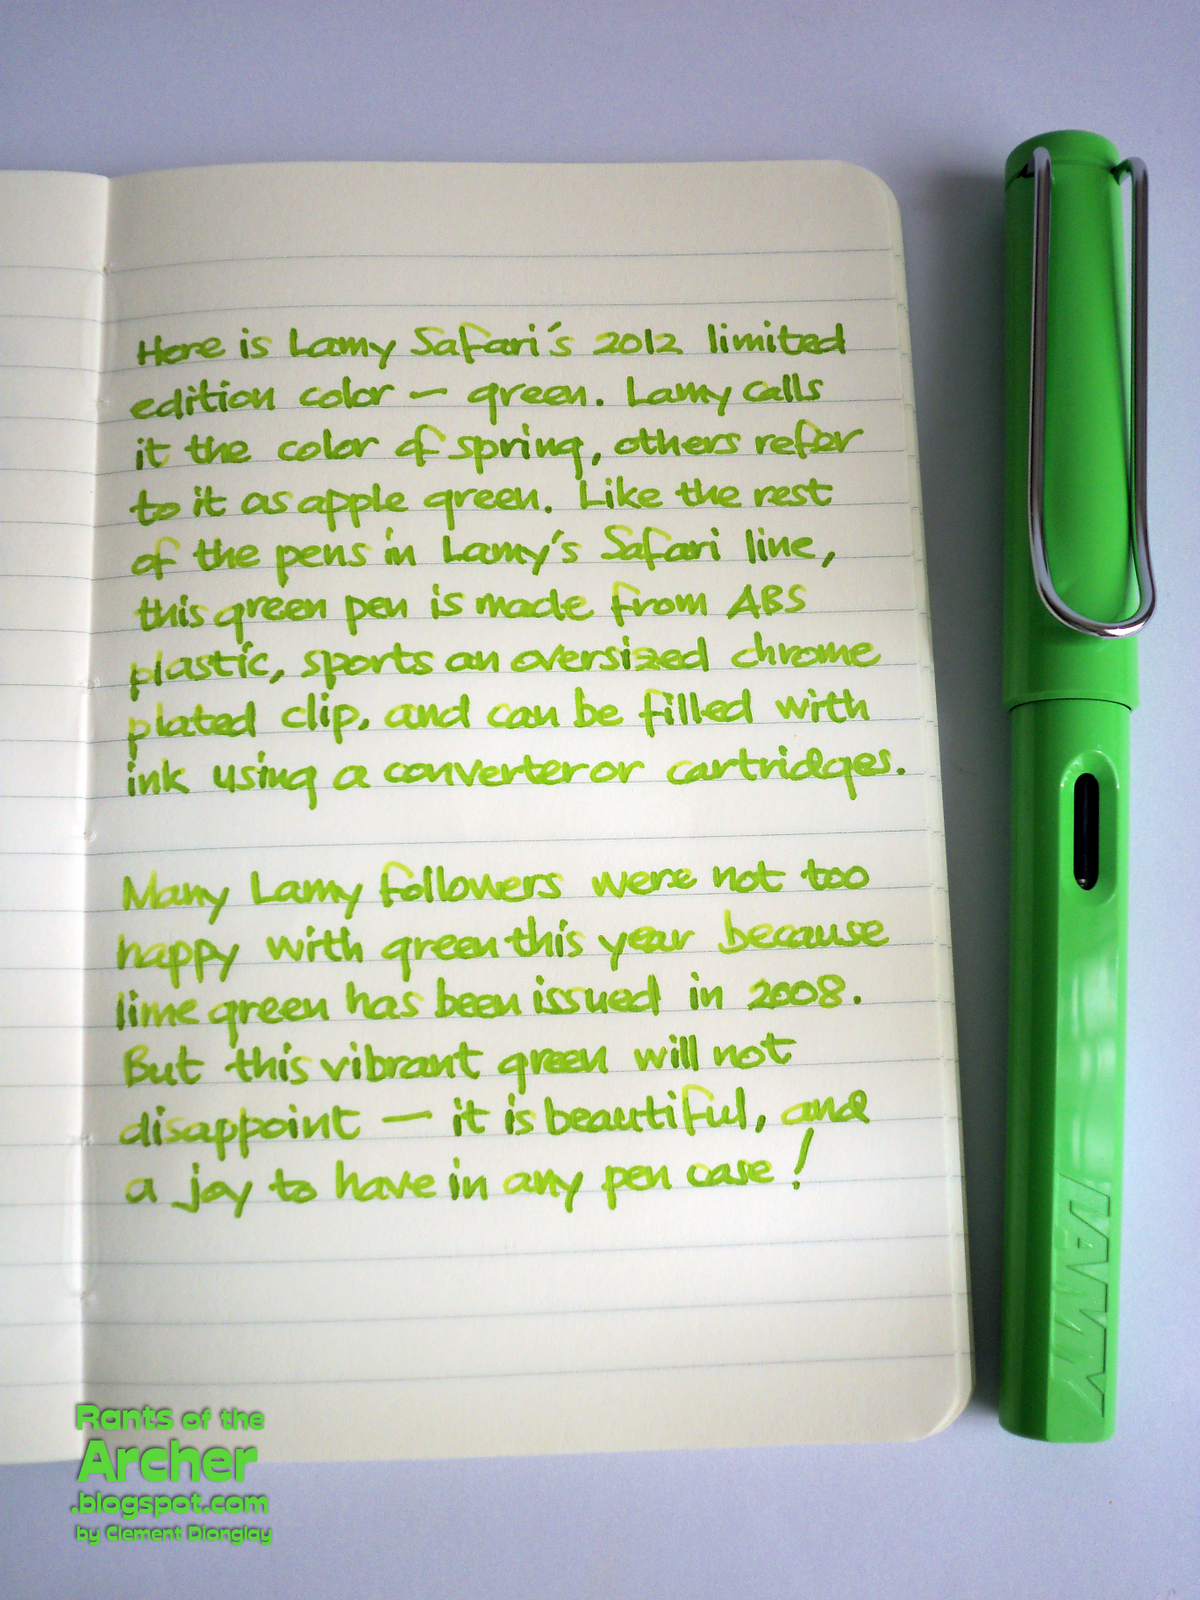 Here is Lamy Safari's 2012 limited
edition color — green. Lamy calls
it the color of spring, others refer
to it as apple green. Like the rest
of the pens in Lamy's Safari line,
this green pen is made from ABS
plastic, sports an oversized chrome
plated clip, and can be filled with
ink using a converter or cartridges.
Many Lamy followers were not too
happy with green this year because
lime green has been issued in 2008.
But this vibrant green will not
disappoint — it is beautiful, and
a joy to have in any pen case!
LAMY
Rants of the
Archer
.blogspot.com
by Clement Dionglay